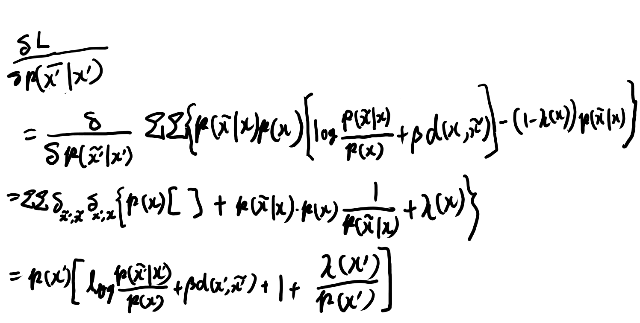 δL
δp(x̃'|x')
= δ/δp(x̃'|x') ΣΣ{p(x̃|x)p(x)[log p(x̃|x)/p(x) + βd(x,x̃)] - (1-λ(x))p(x̃|x)}
= ΣΣ δ_{x̃',x̃} δ_{x',x} {p(x)[ ] + p(x̃|x)·p(x) 1/p(x̃|x) + λ(x)}
= p(x')[log p(x̃'|x')/p(x) + βd(x',x̃') + 1 + λ(x')/p(x')]